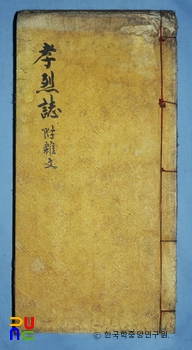 孝烈誌
附雜文
© 한국학중앙연구원.